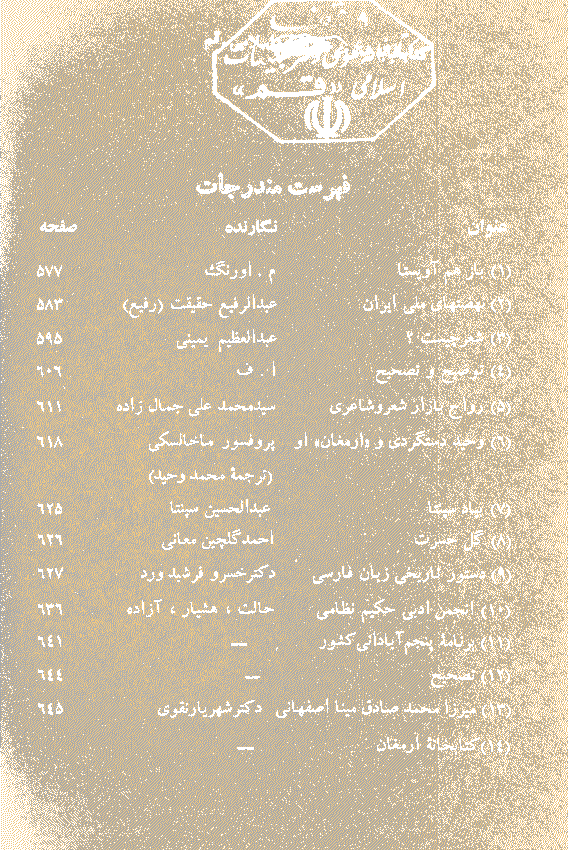 اسلامی «قم»
فهرست مندرجات
عنوان نگارنده صفحه
(۱) باز هم آویستا م . اورنگ ۵۷۷
(۲) نهضتهای ملی ایران عبدالرفیع حقیقت (رفیع) ۵۸۳
(۳) شعر چیست ؟ عبدالعظیم یمینی ۵۹۵
(۴) توضیح و تصحیح ا . ف ۶۰۶
(۵) رواج بازار شعر و شاعری سیدمحمد علی جمال زاده ۶۱۱
(۶) وحید دستگردی و «ارمغان» او پروفسور ماخالسکی ۶۱۸
(ترجمهٔ محمد وحید)
(۷) بیاد سپنتا عبدالحسین سپنتا ۶۲۵
(۸) گل حسرت احمد گلچین معانی ۶۲۶
(۹) دستور تاریخی زبان فارسی دکتر خسرو فرشید ورد ۶۲۷
(۱۰) انجمن ادبی حکیم نظامی حالت ، هشیار ، آزاده ۶۳۶
(۱۱) برنامهٔ پنجم آبادانی کشور — ۶۴۱
(۱۲) تصحیح — ۶۴۴
(۱۳) میرزا محمد صادق مینا اصفهانی دکتر شهریار نقوی ۶۴۵
(۱۴) کتابخانهٔ ارمغان —